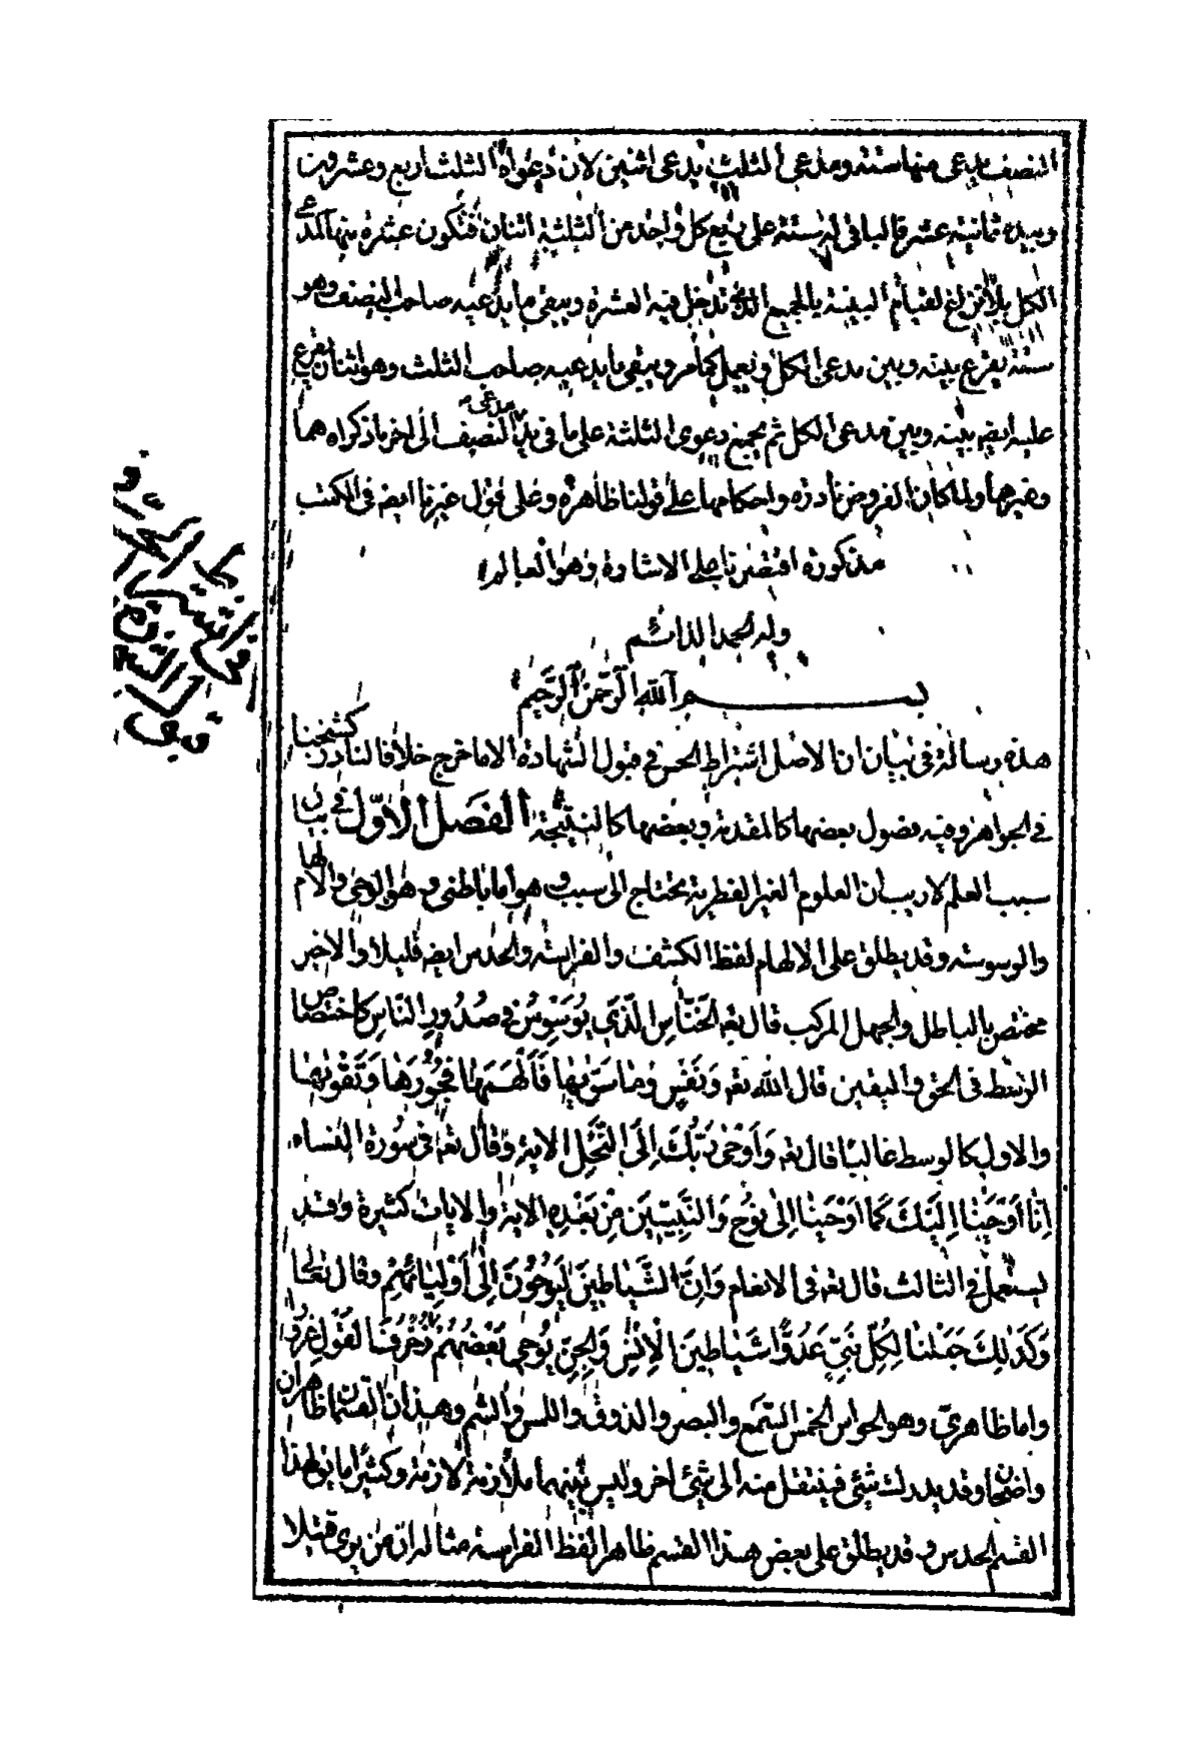 النصف يدعى منها ستة ومدعى الثلث يدعى اثنين لان دعواه الثلث اربع وعشرون
وبيده ثمانية عشر فالباقى له ستة على يد كل واحد من الثلثة اثنان فتكون عشرة منها لمدعى
الكل بلا نزاع لقيام البينة بالجميع تدخل فيه العشرة ويبقى ما يدعيه صاحب النصف وهو
ستة يقرع بينه وبين مدعى الكل ونعمل كما مر ويبقى ما يدعيه صاحب الثلث وهو اثنان يقرع
عليه ايضم بينه وبين مدعى الكل ثم يجمع دعوى الثلثة على ما فى يد مدعى النصف الى اخر ما ذكراه هما
وغيرهما ولما كان الفروض نادره واحكامها على قولنا ظاهرة وعلى قول غيرنا ايضم فى الكتب
مذكورة اقتصرنا على الاشارة وهو العالم
وله الحمد الدائم
بسم الله الرحمن الرحيم
هذه رسالة فى بيان ان الاصل اشتراط الحس فى قبول الشهادة الا ما خرج خلافا لنادر كشيخنا
فى الجواهر وفيه فصول بعضها كالمقدمة وبعضها كالنتيجة الفصل الاول فى بيان
سبب العلم لا ريب ان العلوم الغير الفطرية يحتاج الى سبب وهو اما باطنى وهو الوحى والالهام
والوسوسه وقد يطلق على الالهام لفظ الكشف والفراسه والحدس ايضم قليلا والاخير
مختص بالباطل والجهل المركب قال تعه الخَنّاسِ الَّذي يُوَسْوِسُ في صُدُورِ النّاسِ كاختصاص
الوسط فى الحق واليقين قال الله تعه وَنَفْسٍ وَما سَوّيها فَاَلْهَمَها فُجُورَها وَتَقْويها
والاول كالوسط غالبا قال تعه وَاَوْحى رَبُّكَ اِلَى النَّحْلِ الاية وقال تعه فى سورة النساء
اِنّا اَوْحَيْنا اِلَيْكَ كَما اَوْحَيْنا اِلى نُوحٍ وَالنَّبِيّينَ مِنْ بَعْدِهِ الاية والايات كثيرة وقد
يستعمل فى الثالث قال تعه فى الانعام وَاِنَّ الشَّياطينَ لَيُوحُونَ اِلى اَوْلِيائِهِمْ وقال تعالى
وَكَذلِكَ جَعَلْنا لِكُلِّ نَبِيٍّ عَدُوًّا شَياطينَ الْاِنْسِ وَالجِنِّ يُوحى بَعْضُهُمْ زُخْرُفَ القَوْلِ غُرُورًا
واما ظاهرى وهو الحواس الخمس السمع والبصر والذوق واللمس والشم وهذان القسمان ظاهران
واضحان وقد يدرك شئ فينتقل منه الى شئ اخر وليس بينهما ملازمة لازمة وكثيرا ما يق لهذا
القسم الحدس وقد يطلق على بعض هذا القسم ظاهرا لفظ الفراسة مثاله ان من يرى قتيلا